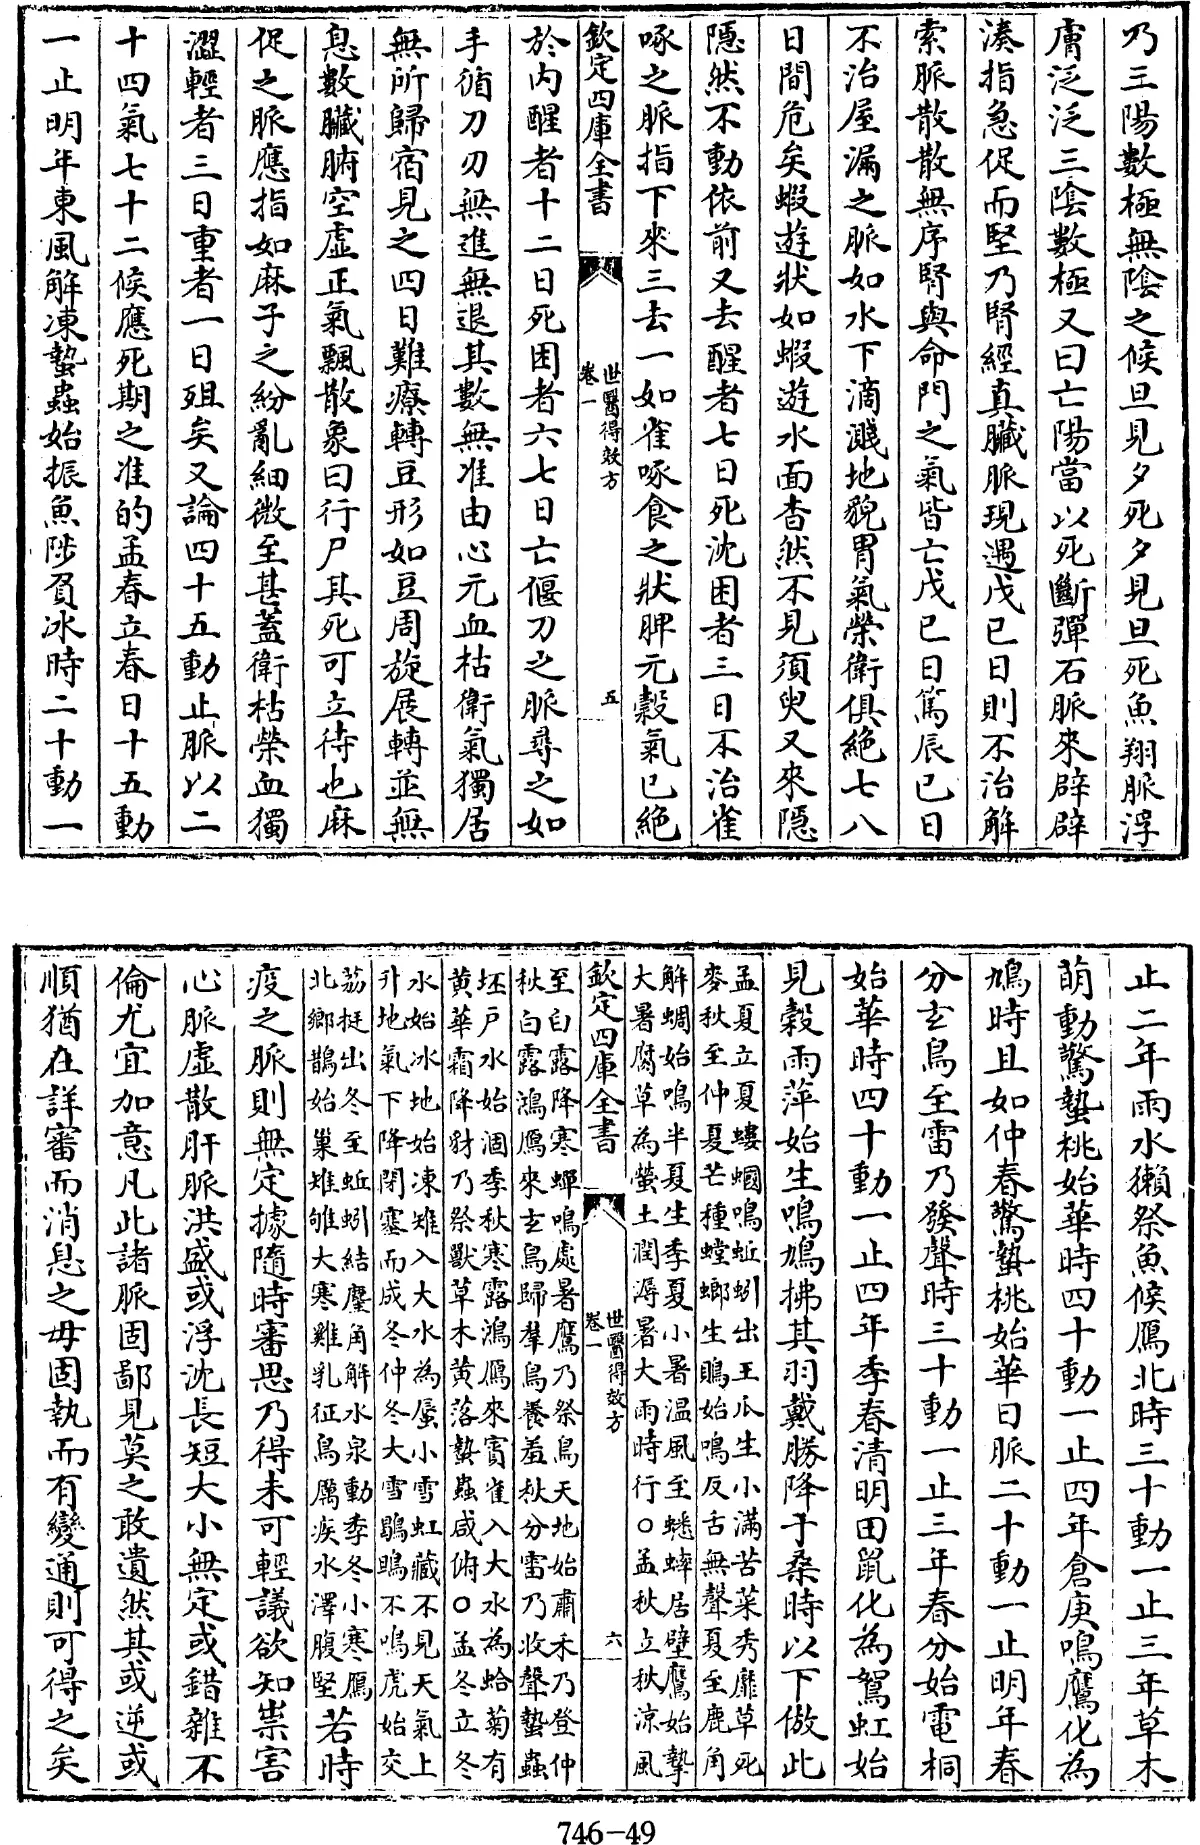 乃三陽數極無陰之候旦見夕死夕見旦死魚翔脈浮
膚泛泛三陰數極又曰亡陽當以死斷彈石脈來辟辟
湊指急促而堅乃腎經真臟脈現遇戊己日則不治解
索脈散散無序腎與命門之氣皆亡戊己日篤辰巳日
不治屋漏之脈如水下滴濺地貌胃氣榮衛俱絶七八
日間危矣蝦遊狀如蝦遊水面杳然不見須臾又來隱
隱然不動依前又去醒者七日死沈困者三日不治雀
啄之脈指下來三去一如雀啄食之狀脾元榖氣已絶
欽定四庫全書
世醫得效方
卷一
五
於内醒者十二日死困者六七日亡偃刀之脈尋之如
手循刀刃無進無退其數無准由心元血枯衛氣獨居
無所歸宿見之四日難療轉豆形如豆周旋展轉並無
息數臟腑空虛正氣飄散象曰行尸其死可立待也麻
促之脈應指如麻子之紛亂細微至甚蓋衛枯榮血獨
澀輕者三日重者一日殂矣又論四十五動止脈以二
十四氣七十二候應死期之准的孟春立春日十五動
一止明年東風解凍蟄蟲始振魚陟負冰時二十動一
止二年雨水獺祭魚候鴈北時三十動一止三年草木
萌動驚蟄桃始華時四十動一止四年倉庚鳴鷹化為
鳩時且如仲春驚蟄桃始華日脈二十動一止明年春
分玄鳥至雷乃發聲時三十動一止三年春分始電桐
始華時四十動一止四年季春清明田鼠化為鴽虹始
見榖雨萍始生鳴鳩拂其羽戴勝降于桑時以下倣此
孟夏立夏螻蟈鳴蚯蚓出王瓜生小滿苦菜秀靡草死
麥秋至仲夏芒種螳螂生鵙始鳴反舌無聲夏至鹿角
解蜩始鳴半夏生季夏小暑温風至蟋蟀居壁鷹始摯
大暑腐草為螢土潤溽暑大雨時行○孟秋立秋涼風
欽定四庫全書
世醫得效方
卷一
六
至白露降寒蟬鳴處暑鷹乃祭鳥天地始肅禾乃登仲
秋白露鴻鴈來玄鳥歸羣鳥養羞秋分雷乃收聲蟄蟲
坯戶水始涸季秋寒露鴻鴈來賓雀入大水為蛤菊有
黃華霜降豺乃祭獸草木黄落蟄蟲咸俯○孟冬立冬
水始冰地始凍雉入大水為蜃小雪虹藏不見天氣上
升地氣下降閉塞而成冬仲冬大雪鶡鴠不鳴虎始交
荔挺出冬至蚯蚓結麋角解水泉動季冬小寒鴈
北鄉鵲始巢雉雊大寒雞乳征鳥厲疾水澤腹堅若時
疫之脈則無定據隨時審思乃得未可輕議欲知祟害
心脈虛散肝脈洪盛或浮沈長短大小無定或錯雜不
倫尤宜加意凡此諸脈固鄙見莫之敢遺然其或逆或
順猶在詳審而消息之毋固執而有變通則可得之矣
746-49